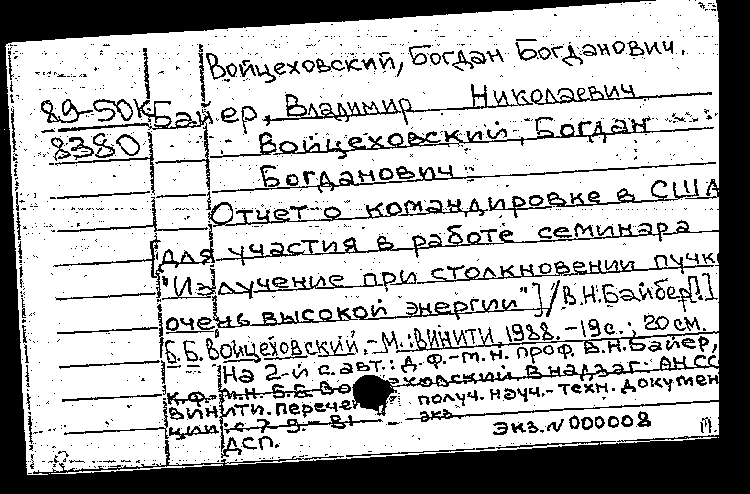 Войцеховский, Богдан Богданович.
89-50к Байер, Владимир Николаевич
8380 Войцеховский, Богдан
Богданович
Отчет о командировке в США
[для участия в работе семинара
"Излучение при столкновении пучко
очень высокой энергии"]/В.Н.Байбер[!]
Б.Б.Войцеховский,-М.:ВИНИТИ,1988.-19с.; 20см.
На 2-й с.авт.: д.ф.-м.н. проф. В.Н.Байер,
к.ф.-м.н. Б.Б. Во еховский В надзаг: АН СС
ВИНИТИ. перече получ. науч.-техн. докумен
ции: с 7-9.-81 экз.
ДСП. экз.N000008